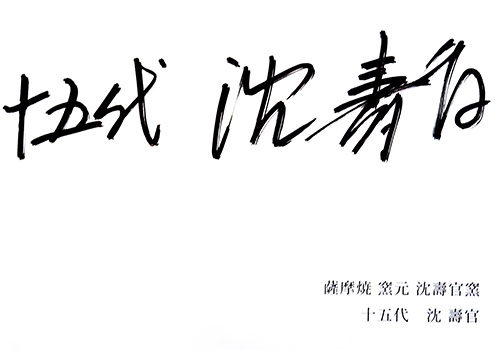 十五代 沈壽官
薩摩焼 窯元 沈壽官窯
十五代 沈 壽官